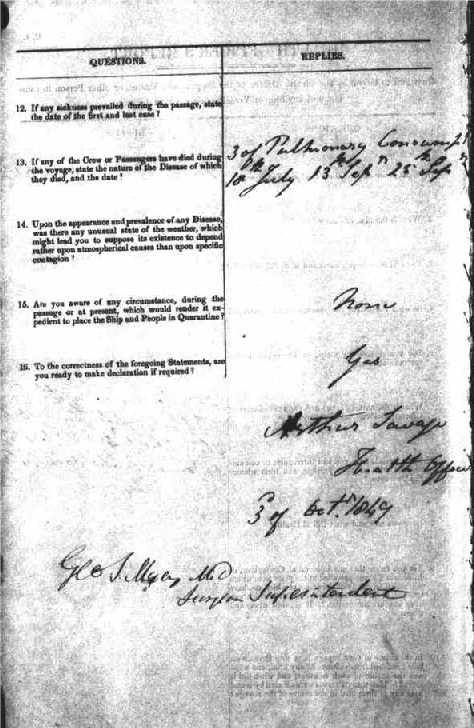 QUESTIONS.
REPLIES.
12. If any sickness prevailed during the passage, state
the date of the first and last case?
13. If any of the Crew or Passengers have died during
the voyage, state the nature of the Disease of which
they died, and the date?
3 of Pulmonary Consump
18th July 13th Sepr 25th Sepr
14. Upon the appearance and prevalence of any Disease,
was there any unusual state of the weather, which
might lead you to suppose its existence to depend
rather upon atmospherical causes than upon specific
contagion?
15. Are you aware of any circumstance, during the
passage or at present, which would render it ex-
pedient to place the Ship and People in Quarantine?
None
16. To the correctness of the foregoing Statements, are
you ready to make declaration if required?
Yes
Arthur Savage
Health Officer
3 of Octr. 1849
Geo S. MD
Surgeon Superintendent